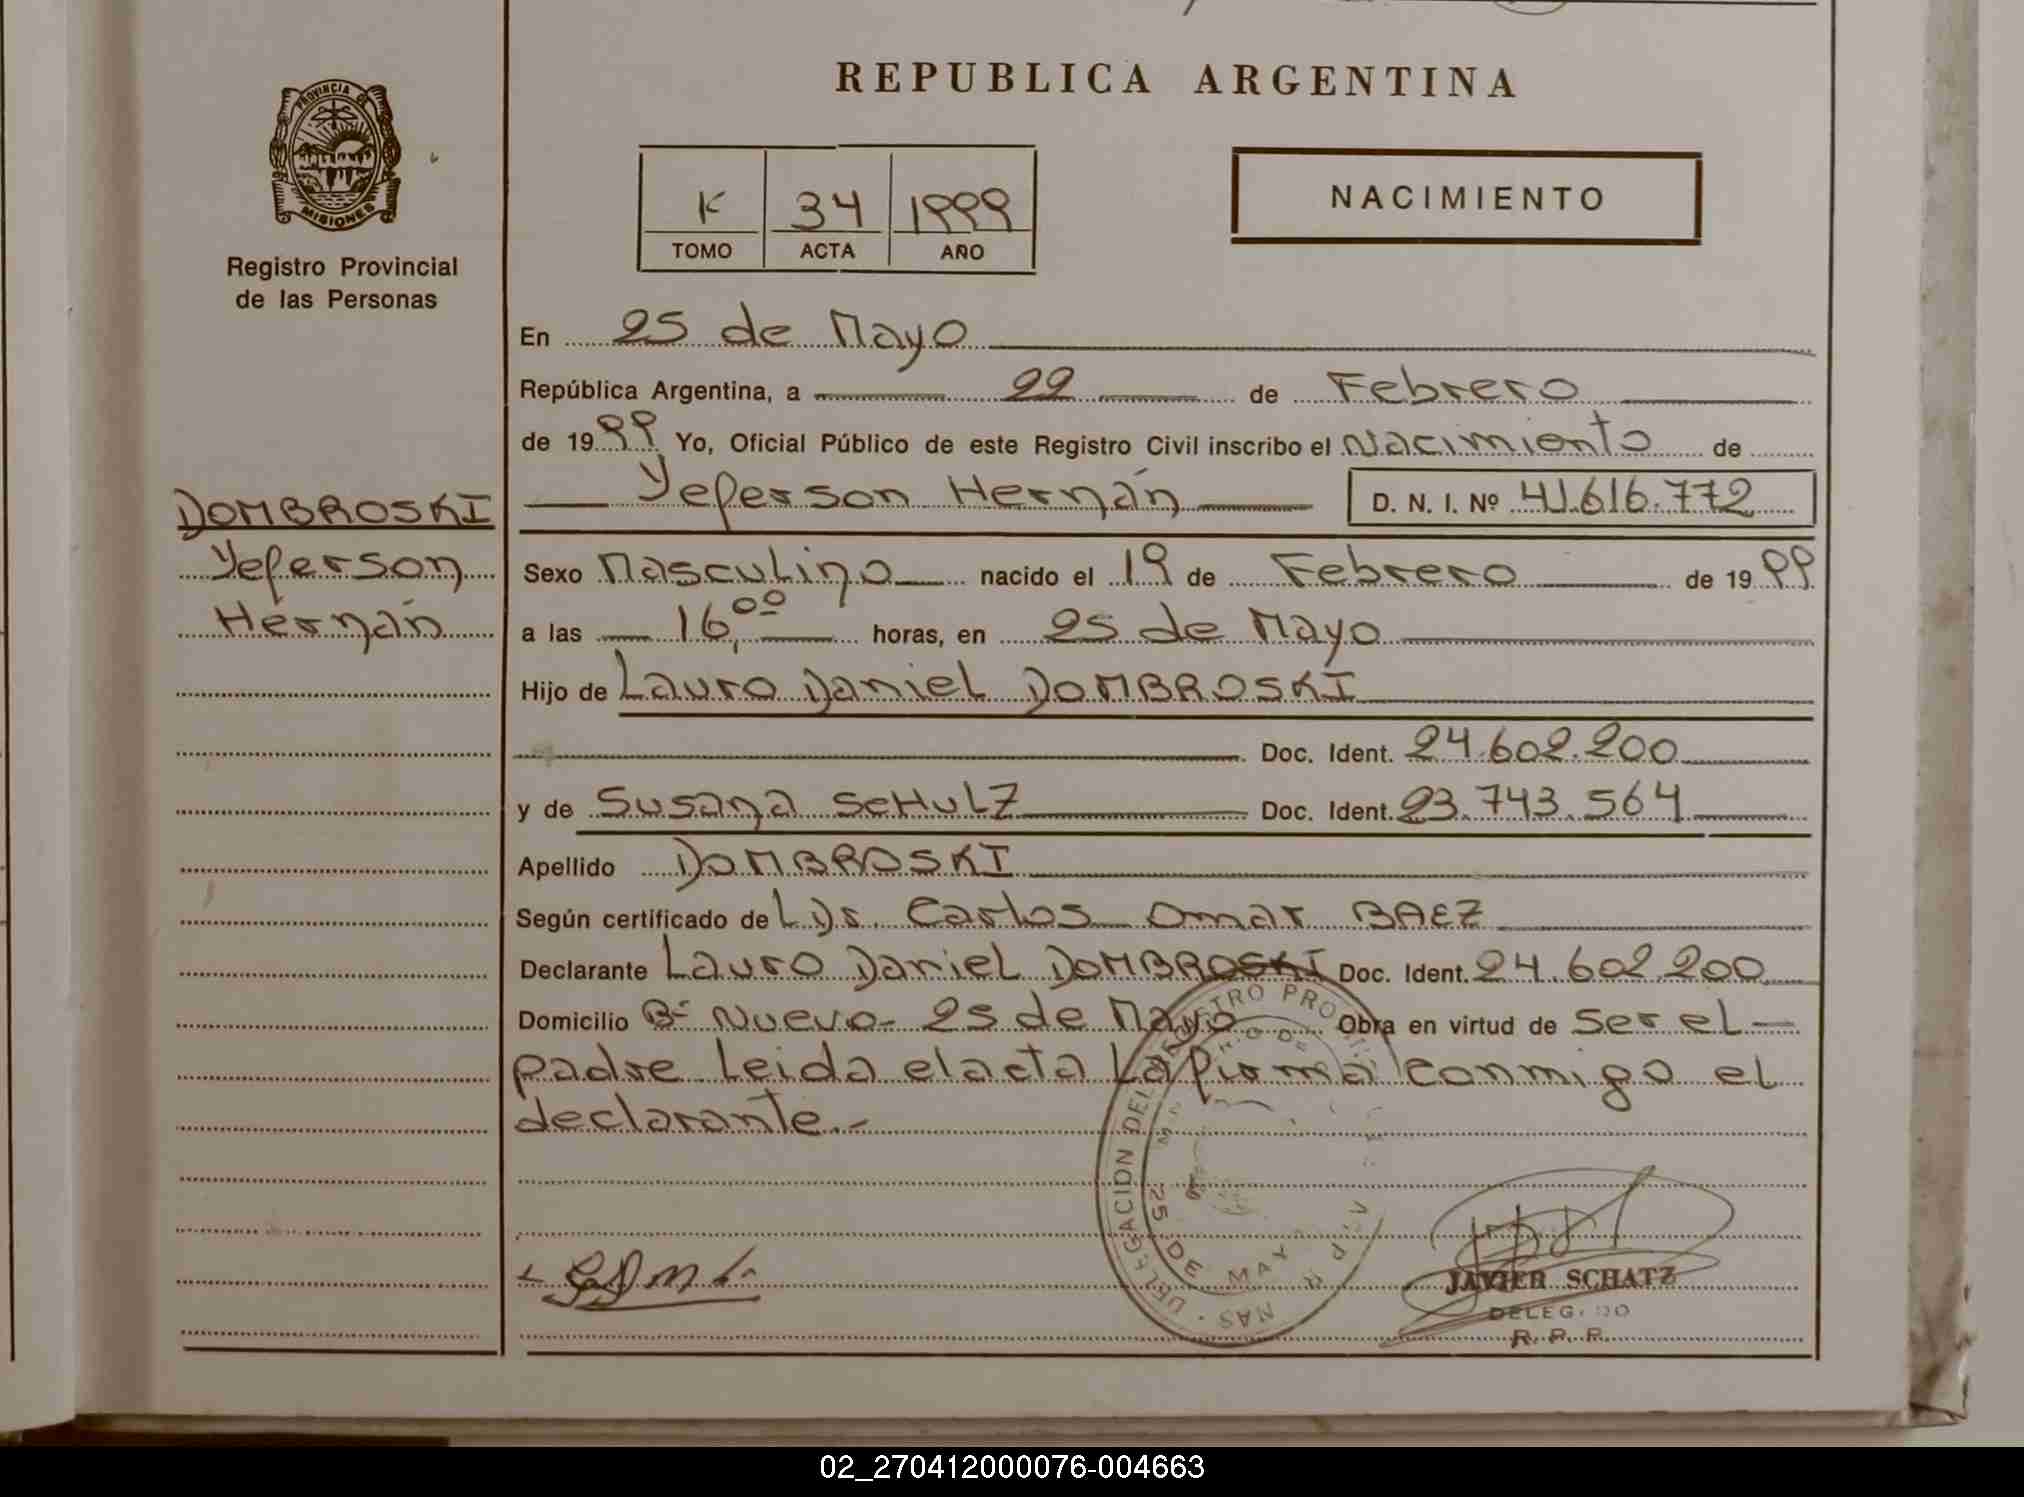 REPUBLICA ARGENTINA
PROVINCIA DE
MISIONES
Registro Provincial
de las Personas
K 34 1999
TOMO ACTA AÑO
NACIMIENTO
En 25 de Mayo
República Argentina, a 22 de Febrero
de 1999 Yo, Oficial Público de este Registro Civil inscribo el Nacimiento de
Yeferson Hernán D. N. I. Nº 41.616.772
DOMBROSKI
Yeferson
Hernán
Sexo Masculino nacido el 19 de Febrero de 1999
a las 16,00 horas, en 25 de Mayo
Hijo de Lauro Daniel DOMBROSKI
Doc. Ident. 24.602.200
y de Susana SCHULZ Doc. Ident. 23.743.564
Apellido DOMBROSKI
Según certificado de L Dr. Carlos Omar BAEZ
Declarante Lauro Daniel DOMBROSKI Doc. Ident. 24.602.200
Domicilio Bº Nuevo - 25 de Mayo Obra en virtud de ser el
padre Leida el acta La firma conmigo el
declarante.-
DELEGACION DEL REGISTRO
25 DE MAYO
JAVIER SCHATZ
DELEGADO
R. P. P.
02_270412000076-004663